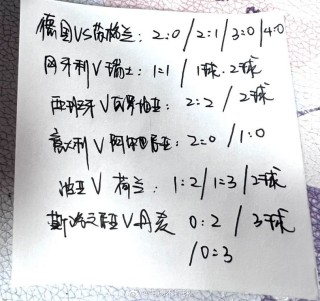 德国VS苏格兰：2:0/2:1/3:0/4:0
匈牙利V瑞士：1:1/1球.2球
西班牙V克罗地亚：2:2/2球
意大利V阿尔巴尼亚：2:0/1:0
波兰V荷兰：1:2/1:3/2球
斯洛文尼亚V丹麦 0:2/3球
/0:3